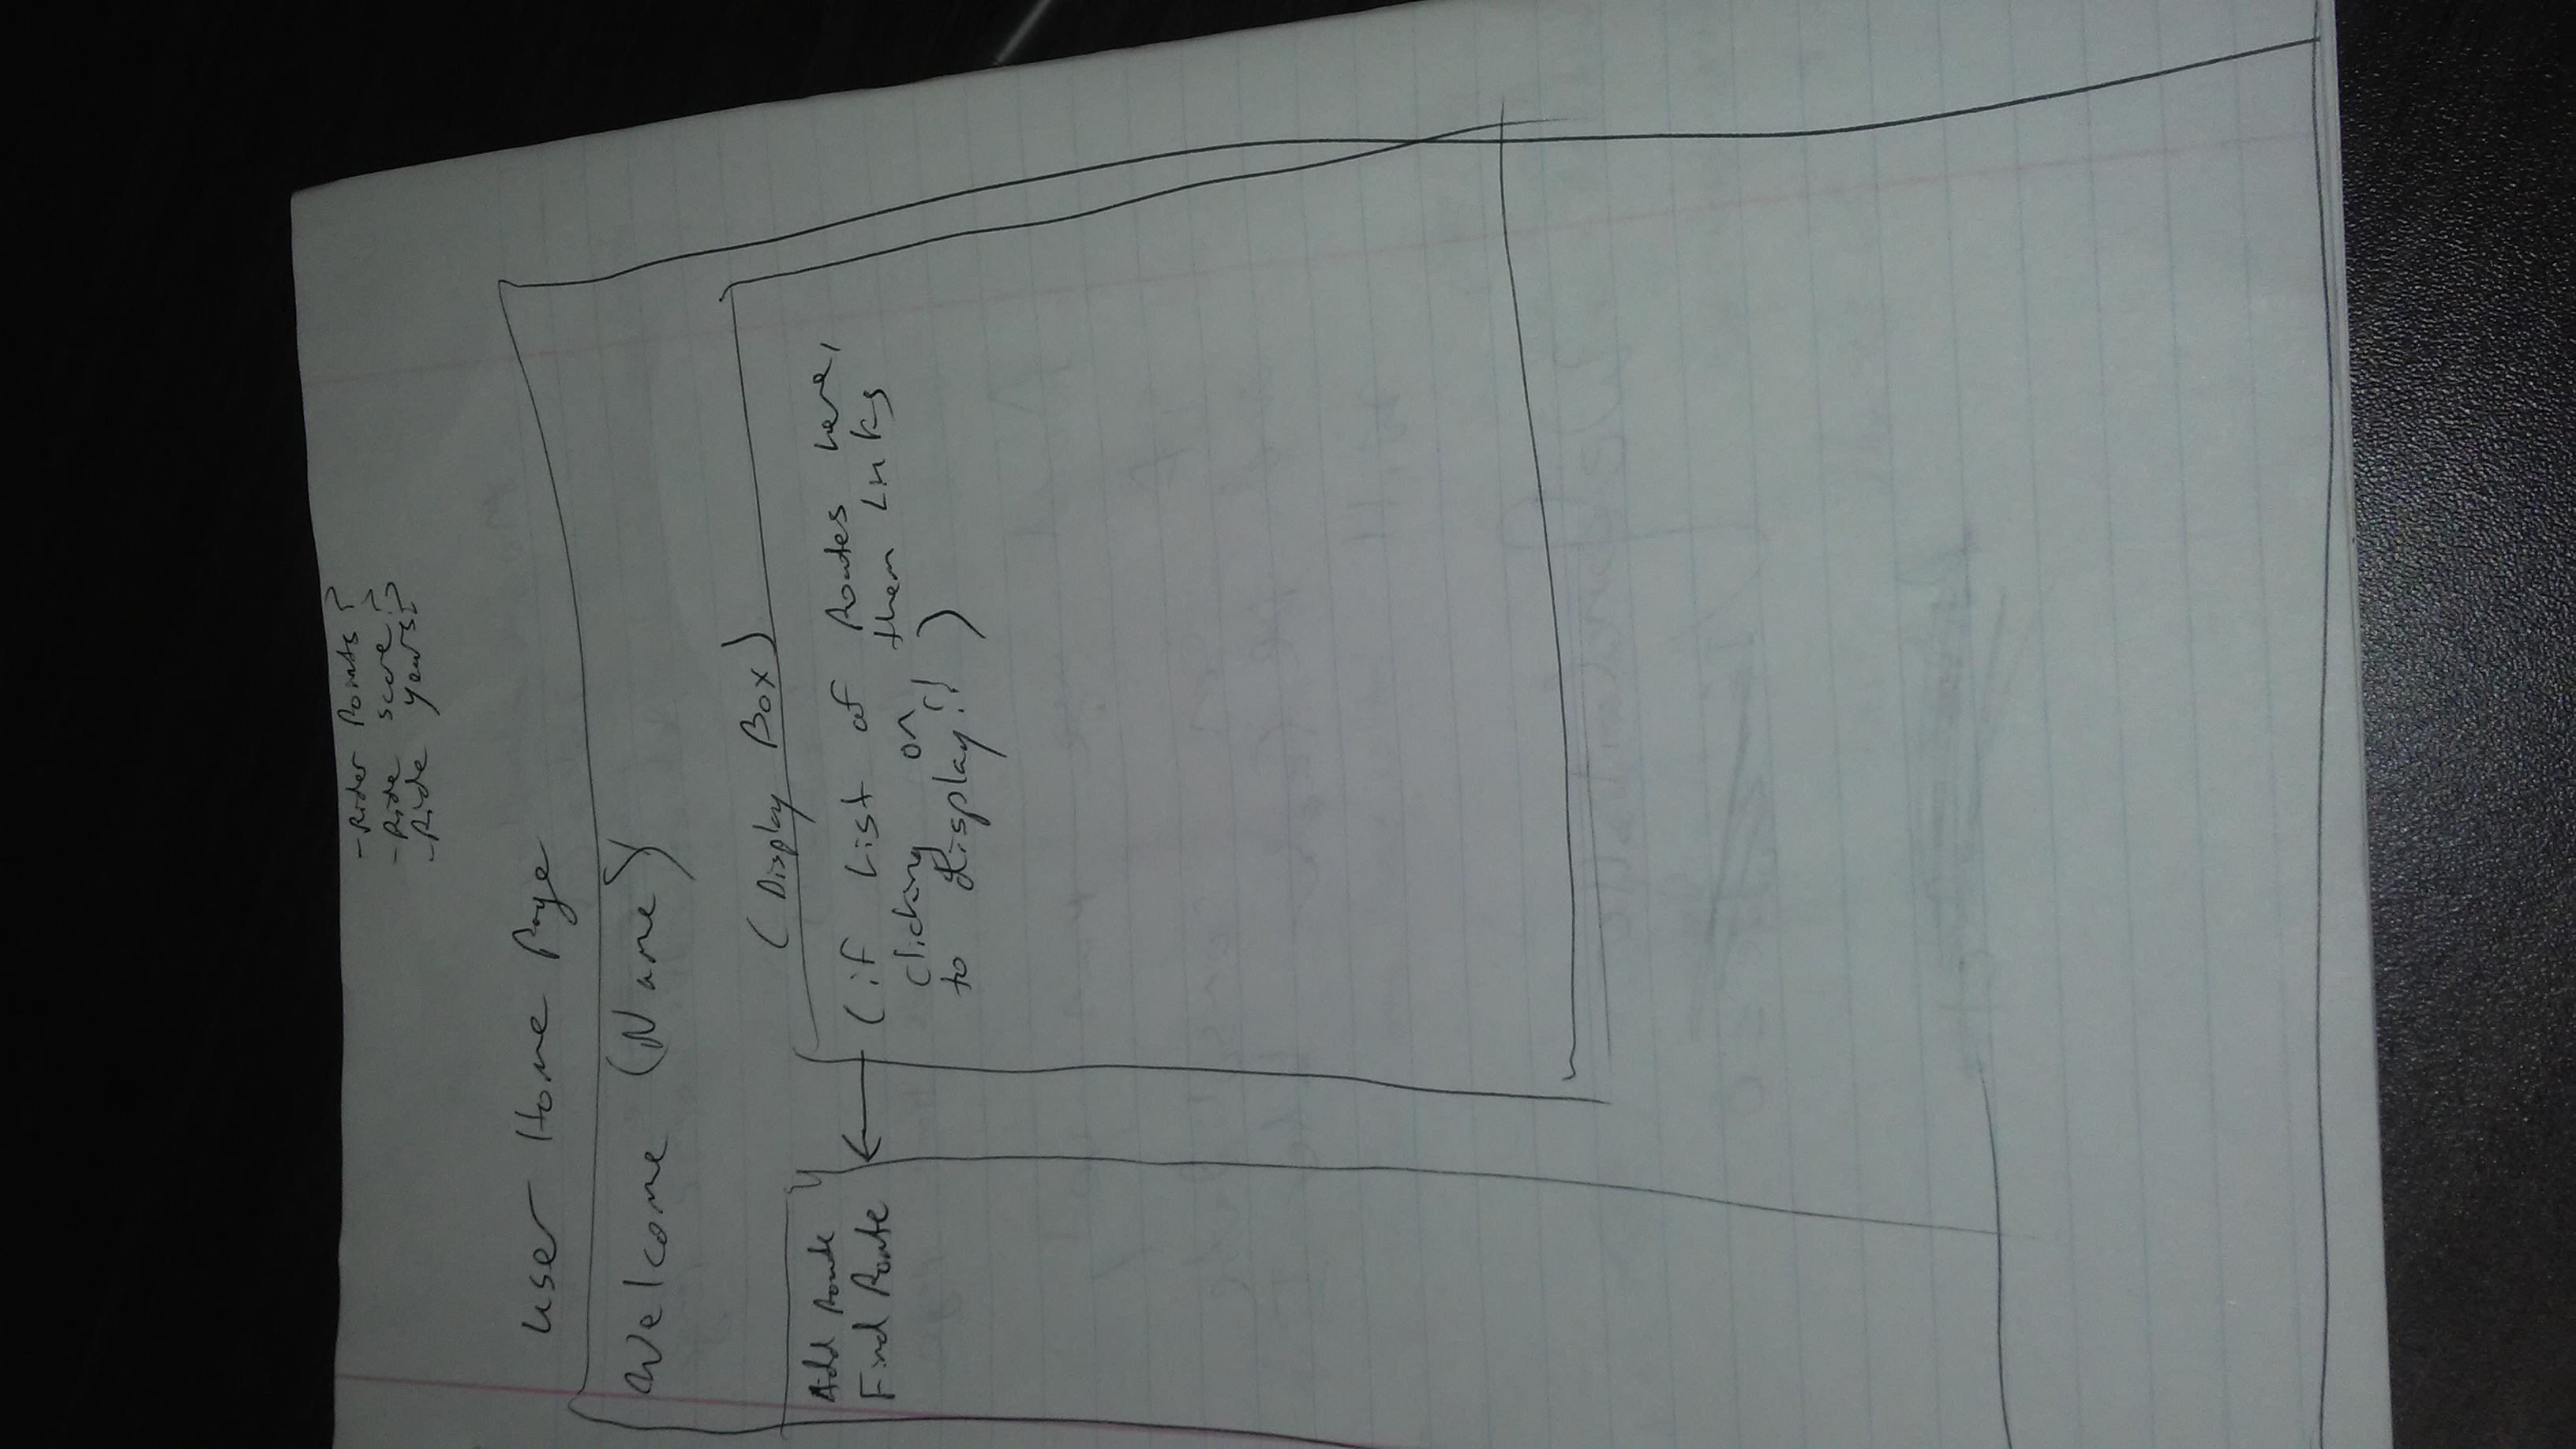 - Rider Points?
- Ride score?
- Ride years?
User Home Page
Welcome (Name)
(Display Box)
Add Route
Find Route
(if List of Routes here,
clicking on them Links
to display!!)